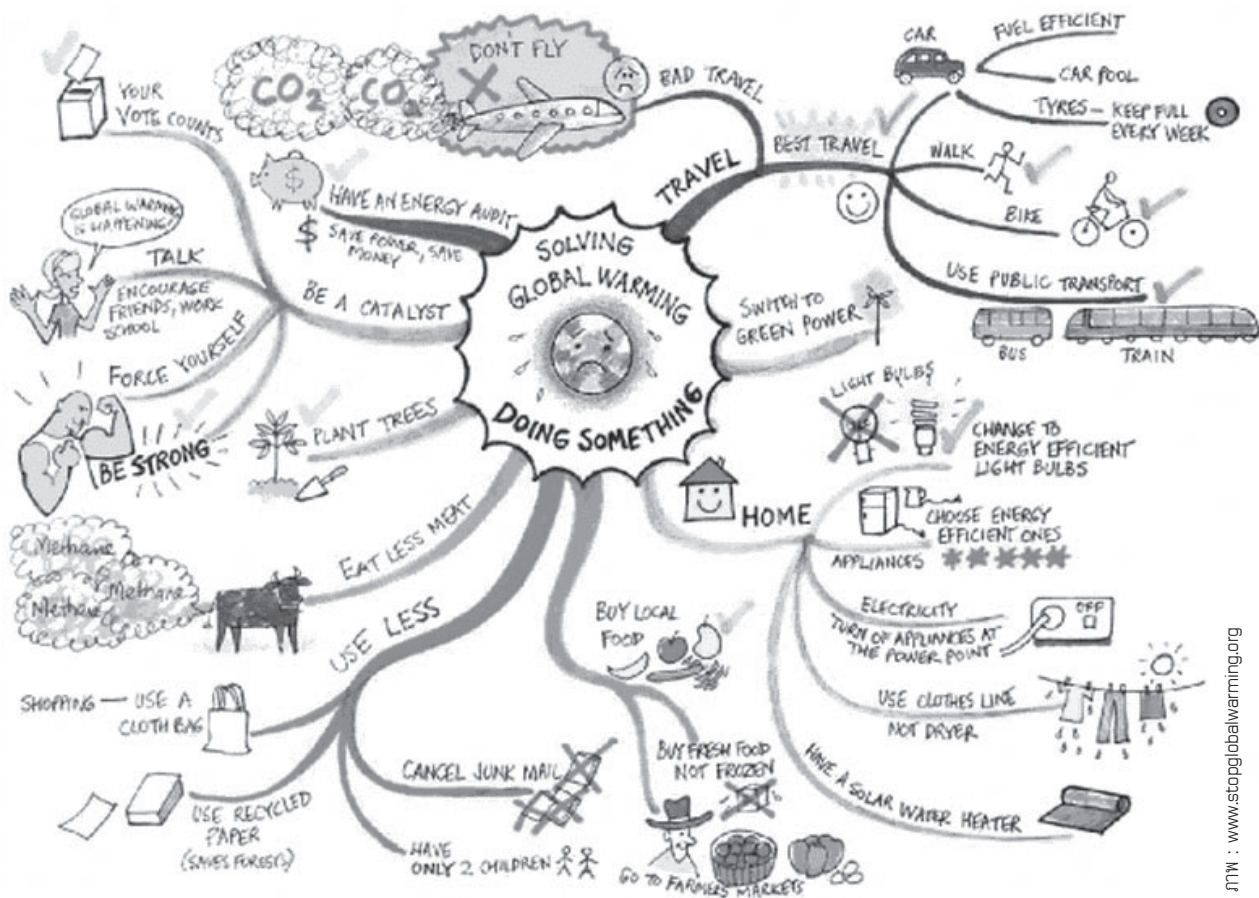 SOLVING
GLOBAL WARMING
DOING SOMETHING
TRAVEL
BAD TRAVEL
DON'T FLY
CO2
CO2
BEST TRAVEL
CAR
FUEL EFFICIENT
CAR POOL
TYRES - KEEP FULL
EVERY WEEK
WALK
BIKE
USE PUBLIC TRANSPORT
BUS
TRAIN
SWITCH TO
GREEN POWER
HOME
LIGHT BULBS
CHANGE TO
ENERGY EFFICIENT
LIGHT BULBS
CHOOSE ENERGY
EFFICIENT ONES
APPLIANCES
ELECTRICITY
TURN OF APPLIANCES AT
THE POWER POINT
OFF
USE CLOTHES LINE
NOT DRYER
HAVE A SOLAR WATER HEATER
BUY LOCAL
FOOD
BUY FRESH FOOD
NOT FROZEN
GO TO FARMERS MARKETS
USE LESS
CANCEL JUNK MAIL
HAVE
ONLY 2 CHILDREN
USE RECYCLED
PAPER
(SAVES FORESTS)
SHOPPING — USE A
CLOTH BAG
EAT LESS MEAT
Methane
Methane
Methane
PLANT TREES
BE A CATALYST
YOUR
VOTE COUNTS
GLOBAL WARMING
IS HAPPENING!
TALK
ENCOURAGE
FRIENDS, WORK
SCHOOL
FORCE YOURSELF
BE STRONG
HAVE AN ENERGY AUDIT
$
$ SAVE POWER, SAVE
MONEY
ภาพ : www.stopglobalwarming.org